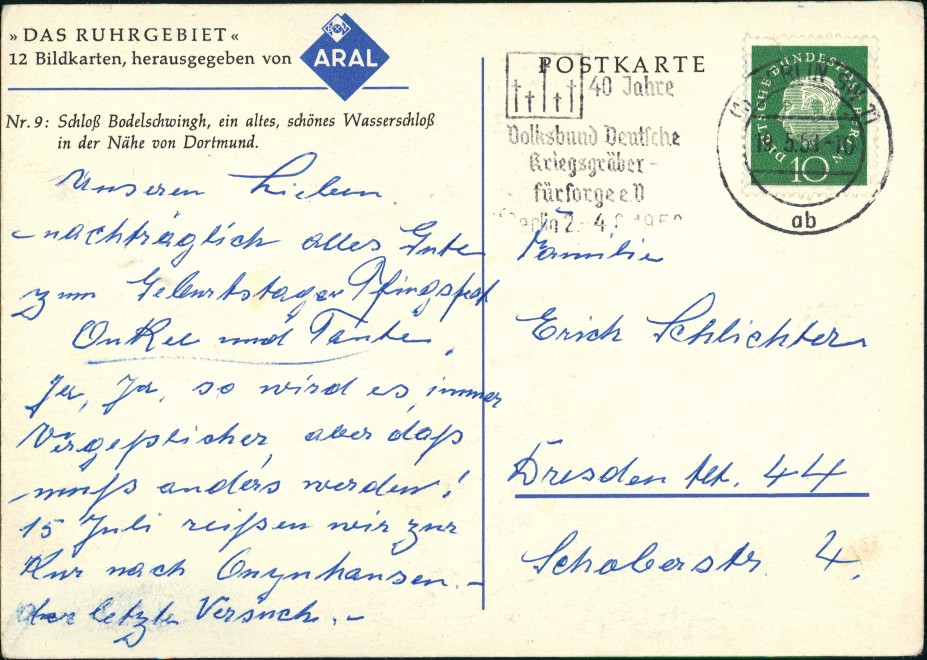 » DAS RUHRGEBIET «
12 Bildkarten, herausgegeben von
BV
ARAL
Nr. 9: Schloß Bodelschwingh, ein altes, schönes Wasserschloß
in der Nähe von Dortmund.
POSTKARTE
40 Jahre
Volksbund Deutsche
Kriegsgräber-
fürsorge e.V
Berlin 2.-4.
DEUTSCHE BUNDESPOST BERLIN
10
BERLIN SW
ab
Unseren Lieben
nachträglich alles Gute
zum Geburtstage Pfingstfest
Onkel und Tante
Ja, Ja, so wird es immer
Vergeßlicher, aber daß
muß anders werden!
15 Juli reißen wir zur
Kur nach Oeynhausen.-
der letzte Versuch.-
Familie
Erich Schlichter
Dresden Alt. 44
Schoberstr. 4.